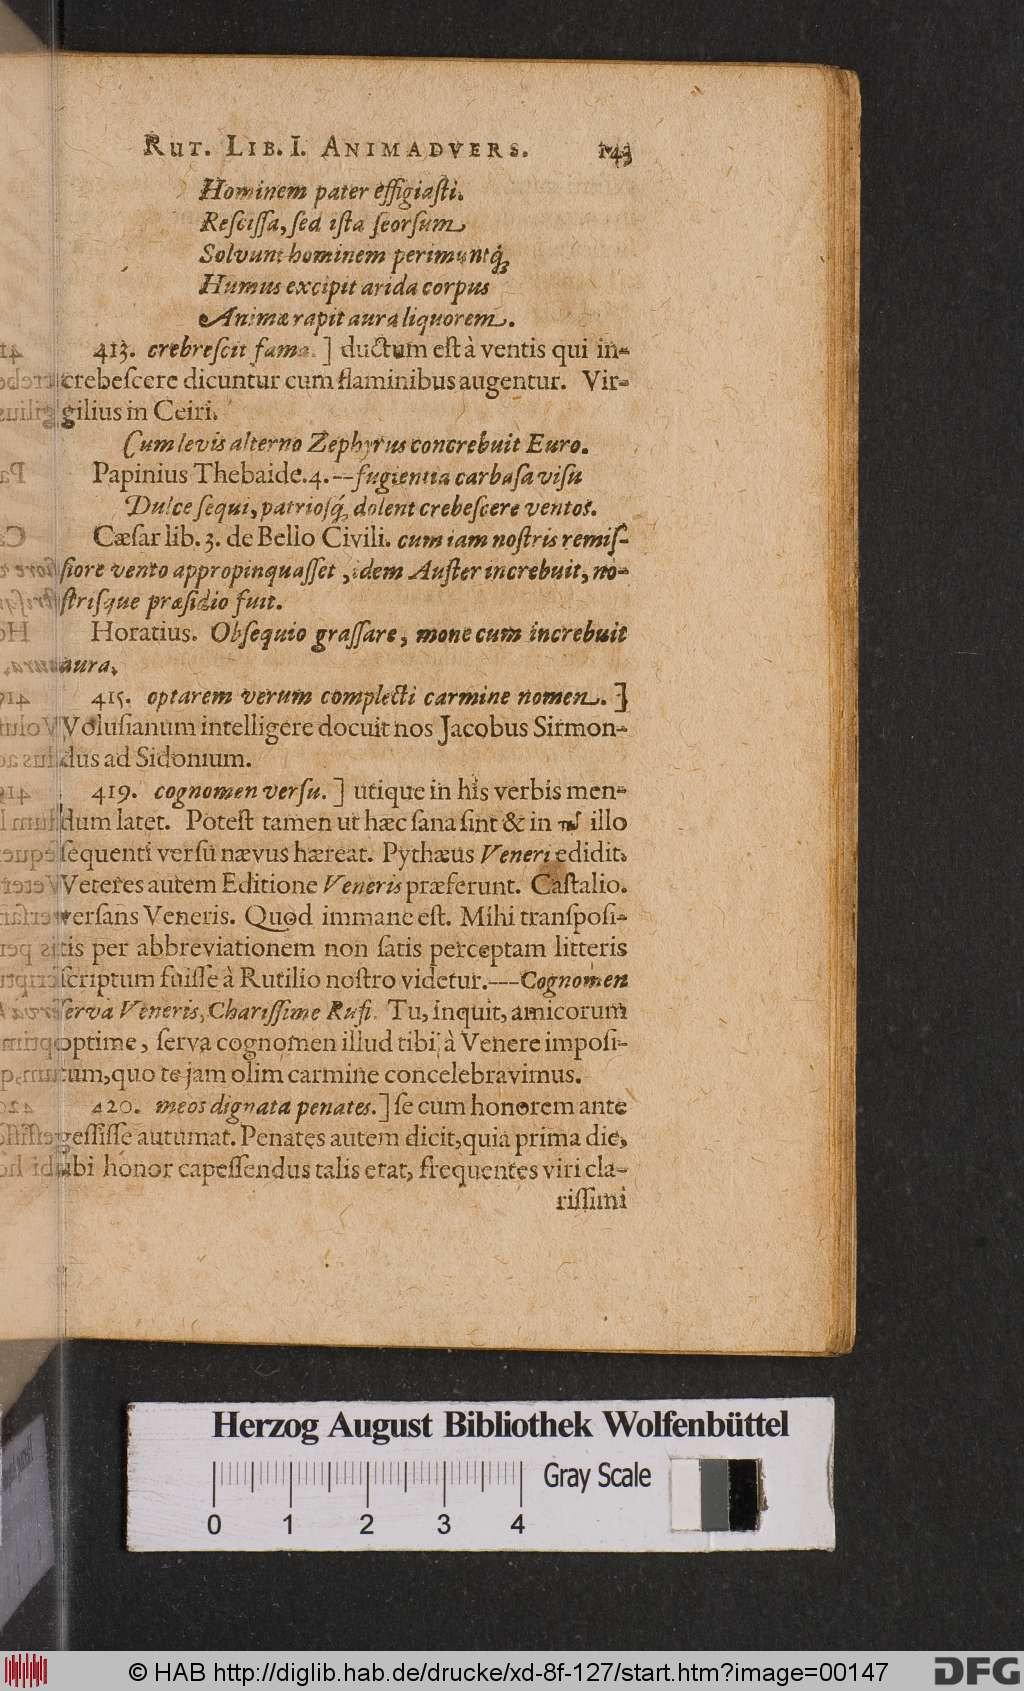 RUT. LIB. I. ANIMADVERS. 143
Hominem pater effigiaſti.
Reſciſſa, ſed iſta ſeorſum
Solvunt hominem perimuntq́;
Humus excipit arida corpus
Animæ rapit aura liquorem.
413. crebreſcit fama.] ductum eſt à ventis qui in-
crebeſcere dicuntur cum flaminibus augentur. Vir-
gilius in Ceiri.
Cum levis alterno Zephyrus concrebuit Euro.
Papinius Thebaide. 4. -- fugientia carbaſa viſu
Dulce ſequi, patrioſq́; dolent crebeſcere ventos.
Cæſar lib. 3. de Bello Civili. cum iam noſtris remiſ-
ſiore vento appropinquaſſet, idem Auſter increbuit, no-
ſtriſque præſidio fuit.
Horatius. Obſequio graſſare, mone cum increbuit
aura.
415. optarem verum complecti carmine nomen.]
Voluſianum intelligere docuit nos Jacobus Sirmon-
dus ad Sidonium.
419. cognomen verſu.] utique in his verbis men-
dum latet. Poteſt tamen ut hæc ſana ſint & in illo
ſequenti verſu nævus hæreat. Pythæus Veneri edidit.
Veteres autem Editione Veneris præferunt. Caſtalio.
verſans Veneris. Quod immane eſt. Mihi tranſpoſi-
tis per abbreviationem non ſatis perceptam litteris
ſcriptum fuiſſe à Rutilio noſtro videtur. --- Cognomen
ſerva Veneris, Chariſſime Rufi. Tu, inquit, amicorum
optime, ſerva cognomen illud tibi à Venere impoſi-
tum, quo te jam olim carmine concelebravimus.
420. meos dignata penates.] ſe cum honorem ante
geſſiſſe autumat. Penates autem dicit, quia prima die,
ubi honor capeſſendus talis erat, frequentes viri cla-
riſſimi
Herzog August Bibliothek Wolfenbüttel
Gray Scale
0 1 2 3 4
© HAB http://diglib.hab.de/drucke/xd-8f-127/start.htm?image=00147
DFG